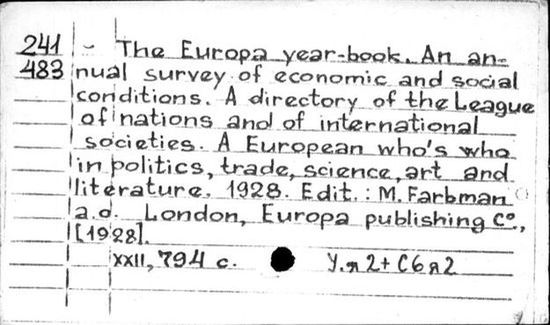 241 - The Europa year-book. An an-
483 nual survey of economic and social
conditions. A directory of the League
of nations and of international
societies. A European who's who
in politics, trade, science, art and
literature. 1928. Edit.: M. Farbman
a.o. London, Europa publishing Cº.,
[1928].
XXII, 794 c. У.я2+С6я2